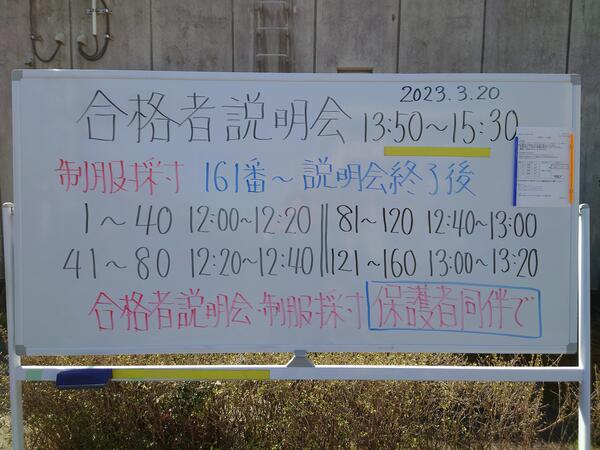 2023.3.20.
合格者説明会 13:50~15:30
制服採寸 161番~説明会終了後
1~40 12:00~12:20 81~120 12:40~13:00
41~80 12:20~12:40 121~160 13:00~13:20
合格者説明会・制服採寸 保護者同伴で